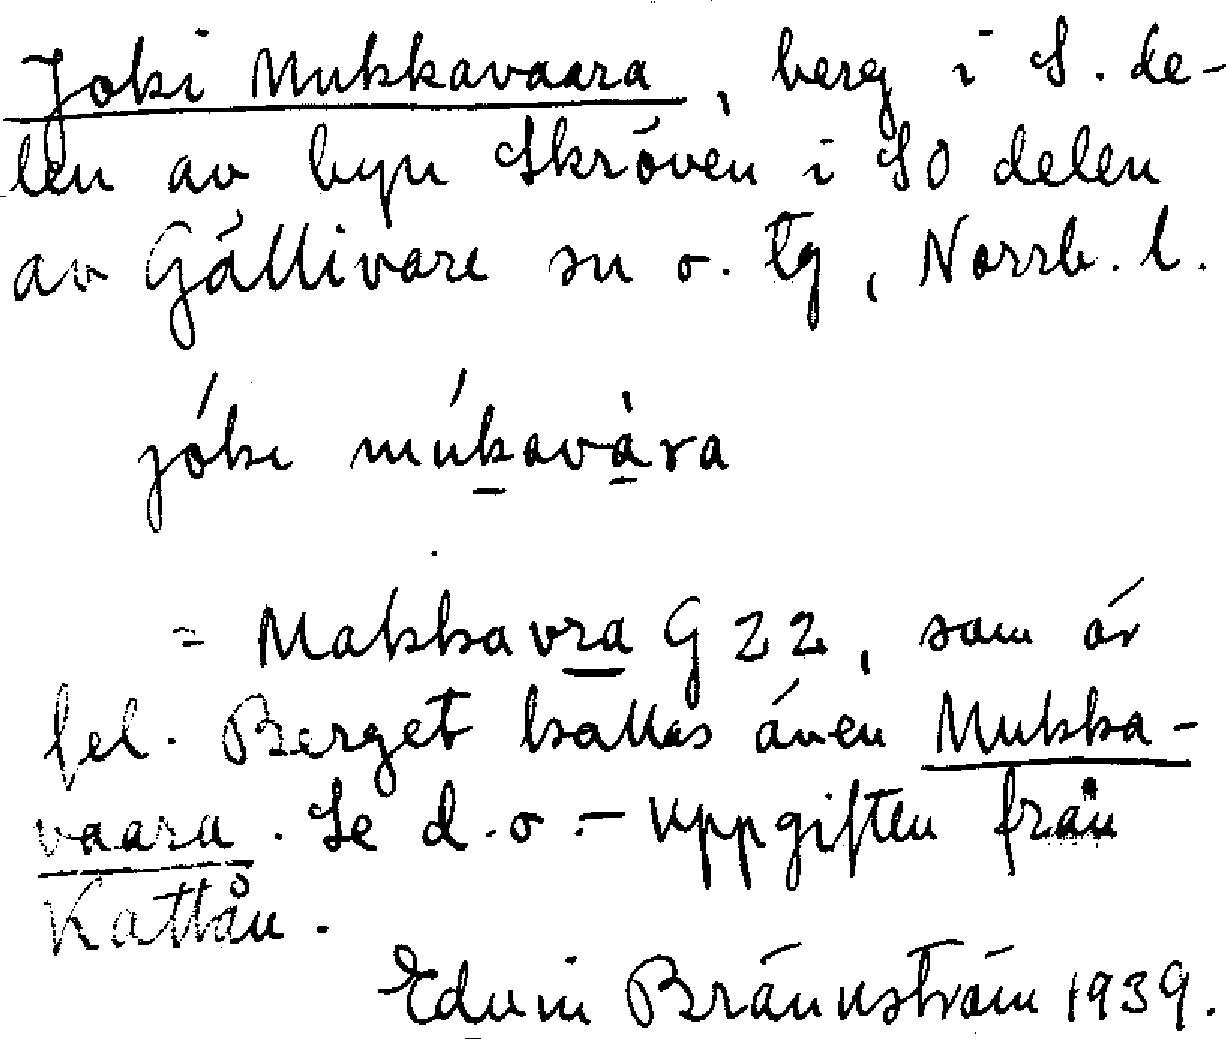 Joki Mukkavaara, berg i S. de-
len av byn Skröven i SO delen
av Gällivare sn o. tg, Norrb. l.
jóki múkavàra
= Makkavra G 22, som är
fel. Berget kallas även Mukka-
vaara. Se d. o. – Uppgiften från
Kattån.
Edvin Brännström 1939.